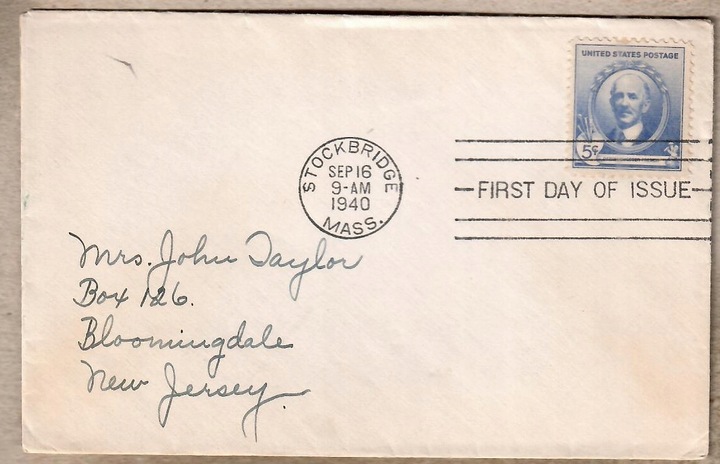 UNITED STATES POSTAGE
5¢
STOCKBRIDGE
SEP 16
9-AM
1940
MASS.
FIRST DAY OF ISSUE
Mrs. John Taylor
Box 126.
Bloomingdale
New Jersey.